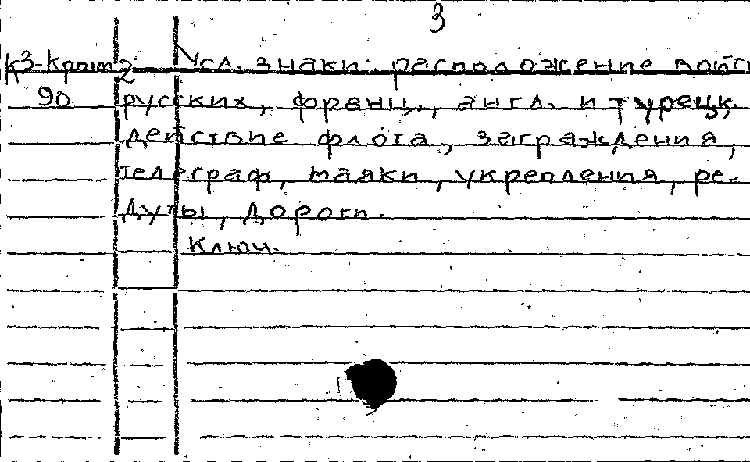 3
К3-Крым 2 Усл. знаки: расположение войск
90 русских, франц., англ. и турецк.
действие флота, заграждения,
телеграф, маяки, укрепления, ре-
дуты, дороги.
Ключ.